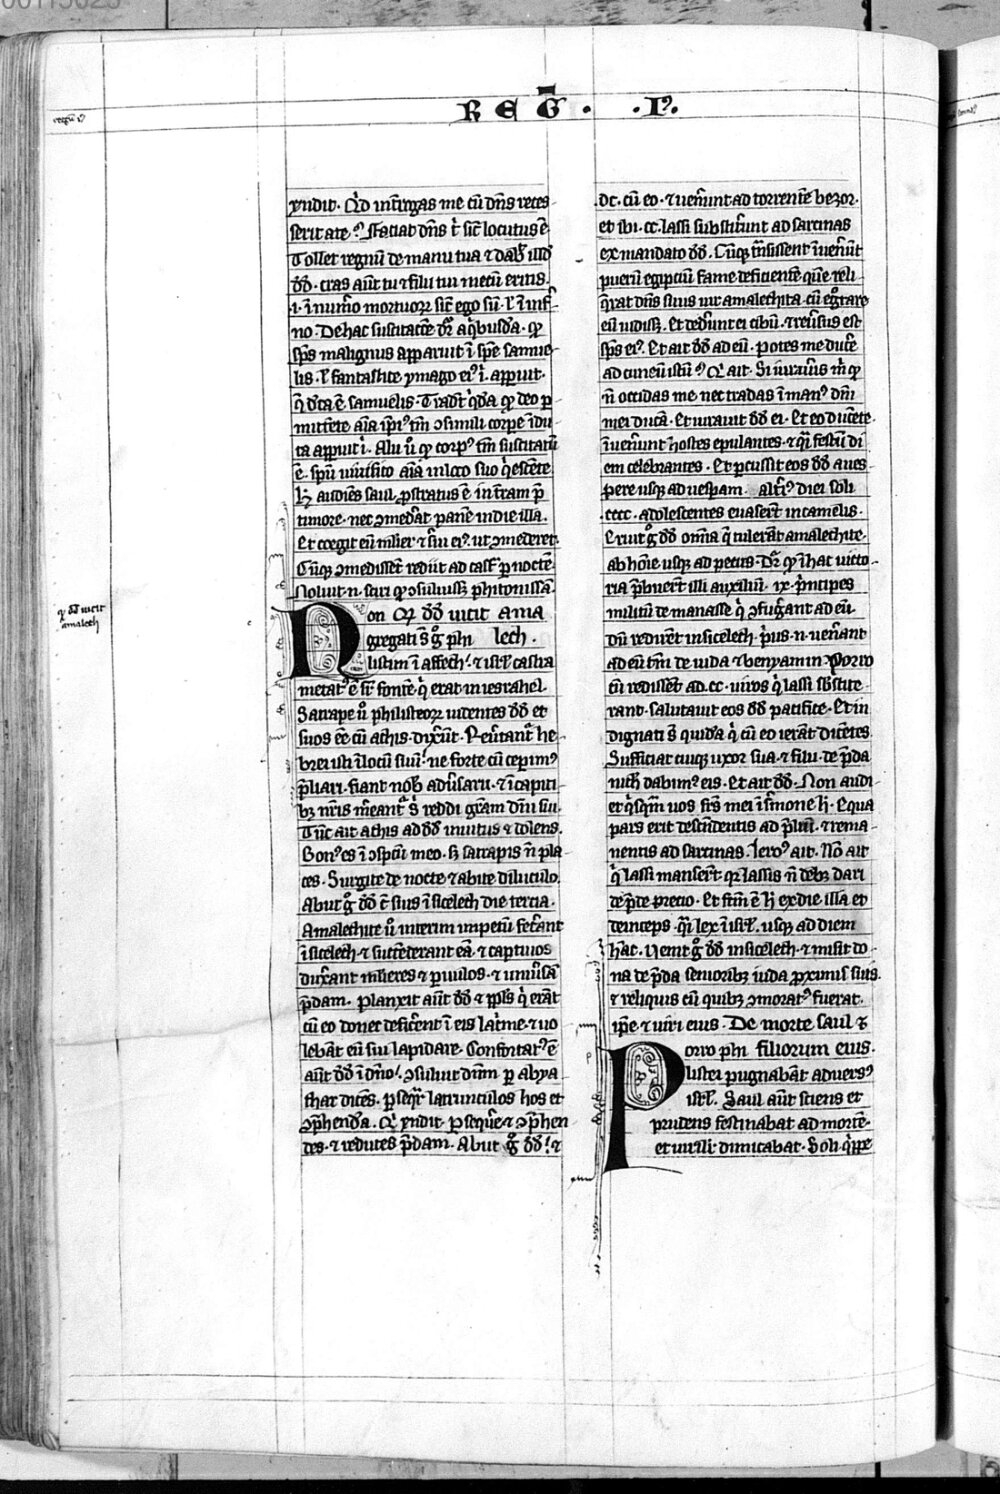 REG̅ . .I⁹.
rñdit. Qͥd int̾rogas me cū dñs reces
serit a te.⁊ Faciat dñs tͥ sic̄ locutus ē
Tollet regnū de manu tua ⁊ dabͥt illd
dd. cras aūt tu ⁊ filii tui mecū eritis.
.i. ī num̾o mortuoꝝ sic̄ ego sū. ł ī inf̾
no. De hac suscitatōe dr̄ a qͥbusdā. qͩ
sps̄ malignus apparuit ī spē samue
lis. ł fantastice ymago eiꝰ ī. appuit.
q̄ dc̄a ē samuelis. Tradūt qͥdā qͩ deo p̱
mittēte aīa ipīꝰ tm̄ ↄsimili corpe īdu
ta appuit ī. Alii u̾o qͩ corpꝰ tm̄ suscitatū
ē. spū uiuifico aīa in loco suo qͥescēte
h̄ audiēs saul ꝓstratus ē in t̾ram p̄
timore. nec ↄmed̾at panē in die illa.
Et coegit eū mulier ⁊ s̾ui eiꝰ. ut ↄmederet.
Cūqꝫ ↄmedissēt rediit ad castͣ p̱ noctē.
Noluit .n. sciri qͩ ↄsuluissꝫ phitonissā.
qͩ dd uicit
amalech
Non Qꝫ dd uicit ama
gregati sͭ g̊ phi lech.
listiim ī affech. ⁊ isrł castra
metatꝰ ē sr̄ fontē qͥ erat in iesrahel.
Satrape u̾o philisteoꝝ uidentes dd et
suos eē cū achis. dixerūt. Reu̾tant̾ he
brei isti ī locū suū. ne forte cū ceperimꝰ
p̄liari. fiant nob̄ adu̾sarii. ⁊ ī capiti
bꝫ nr̄is m̾eant̾ s̾ reddi gr̄am dn̄o suo
Tūc ait achis ad dd inuitus ⁊ dolens.
Bonꝰ es ī ↄspc̄u meo. sꝫ satrapis n̄ pla
ces. Surgite de nocte ⁊ abite diluculo.
Abiit g̊ dd ⁊ sui ī sicelech die tercia.
Amalechite u̾o interim impetū fec̾ant
ī sicelech ⁊ succēderant eā. ⁊ captiuos
dux̾ant mlieres ⁊ paruulos. ⁊ uniu̾sā
p̄dam. Planxit aūt dd ⁊ ppl̄s qͥ erat
cū eo donec deficer̄ent ī eis lac̾me. ⁊ uo
lebāt eū sui lapidare. Confortatꝰ ē
aūt dd ī dn̄o. ↄsuluit dn̄m p̱ abya
thar dicēs. p̱seqͣr latrunculos hos et
ↄp̄hendā. Qͥ rñdit. p̱sequ̾e ⁊ ↄp̄hen
des. ⁊ reduces p̄dam. Abiit g̊ dd. ⁊
.dc. cū eo. ⁊ uen̾unt ad torrentē bezor.
et ibi .cc. lassi substit̾unt ad sarcinas
ex mandato dd. Cūqꝫ tͣnsissent īuen̾ūt
puerū egiptiū fame deficientē quē reli
q̾rat dñs suus uir amalechita. cū eg̊tare
eū uidissꝫ. Et ded̾unt ei cibū. ⁊ reu̾sus est
sps̄ eiꝰ. Et ait dd ad eū. Potes me duc̾e
ad cuneū istū. Qͥ ait. Si iurau̾is mͥ qͩ
n̄ occidas me. nec tradas ī manꝰ dn̄i
mei ducā. Et iurauit dd ei. Et eo ducēte
īuen̾unt hostes epulantes. ⁊ qͣsi festū di
em celebrantes. Et p̱cussit eos dd a ues
pere usqꝫ ad uesp̱am. alt̾iꝰ diei soli
.cccc. adolescentes euaser̄t in camelis.
Eruit g̊ dd omnia q̄ tulerāt amalechite.
ab hoīe usqꝫ ad pecus. Dr̄ qͩ ī hac uicto
ria p̄buer̄t illi auxiliū. ix. pͥncipes
militum de manasse qͥ ↄfug̾ant ad eū.
dū rediret in sicelech. pͥus .n. uen̾ant
ad eū tm̄ de iuda ⁊ beniamin. Porro
cū redissēt ad .cc. uiros qͥ lassi sb̄stite
rant. salutauit eos dd pacifice. Et in
dignati sͭ quidā qͥ cū eo ierāt dicētes.
Sufficiat cuiqꝫ uxor sua ⁊ filii. de p̄da
nich̄ dabimꝰ eis. Et ait dd. Non audi
et qͥsqͣm uos frs̄ mei ī s̾mone h̄. Equa
pars erit descēdentis ad p̄liū. ⁊ rema
nentis ad sarcinas. Ieroꝰ ait. Nō ait
qͥ lassi manser̄t. qꝛ lassis n̄ debꝫ dari
de p̄de precio. Et ftm̄ ē h̄ ex die illa et
deinceps. qͣsi lex ī isrł. usqꝫ ad diem
hāc. Uenit g̊ dd in sicelech ⁊ misit do
na de p̄da senioribꝫ iuda ꝓximis suis.
⁊ reliquis cū quibꝫ ↄmoratꝰ fuerat.
ip̄e ⁊ uiri eius. De morte saul ⁊
Porro phi filiorum eius.
listei pugnabāt aduersꝰ
isrł. Saul aūt sciens et
prudens festinabat ad mortē.
et uirilit̾ dimicabat. Soli qͥppe